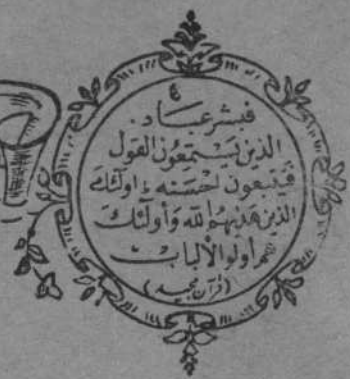 فبشر عباد
الذين يستمعون القول
فيتبعون احسنه اولئك
الذين هديهم الله وأولئك
هم اولوا الألباب
(قرآن مجيد)